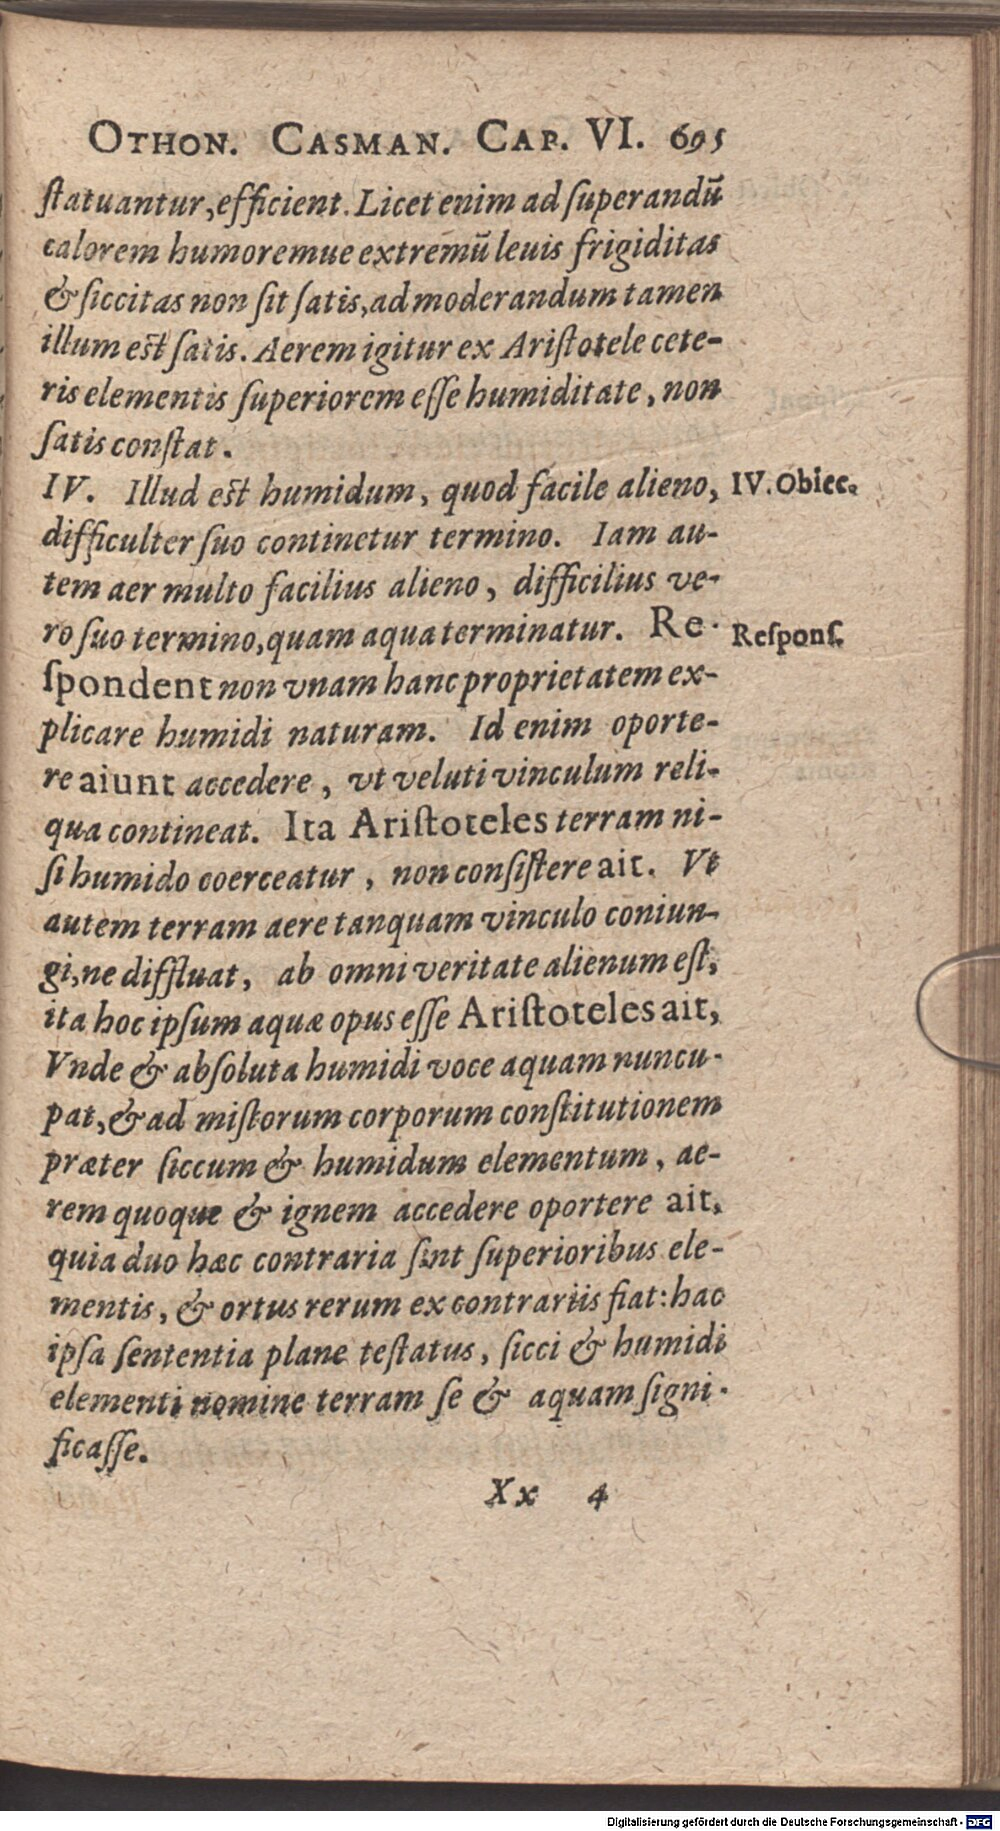 OTHON. CASMAN. CAP. VI. 695
ſtatuantur, efficient. Licet enim ad ſuperandū
calorem humoremue extremū leuis frigiditas
& ſiccitas non ſit ſatis, ad moderandum tamen
illum eſt ſatis. Aerem igitur ex Ariſtotele cete-
ris elementis ſuperiorem eſſe humiditate, non
ſatis conſtat.
IV. Illud eſt humidum, quod facile alieno, IV. Obiec.
difficulter ſuo continetur termino. Iam au-
tem aer multo facilius alieno, difficilius ve-
ro ſuo termino, quam aqua terminatur. Re- Reſponſ.
ſpondent non vnam hanc proprietatem ex-
plicare humidi naturam. Id enim oporte-
re aiunt accedere, vt veluti vinculum reli-
qua contineat. Ita Ariſtoteles terram ni-
ſi humido coerceatur, non conſiſtere ait. Vt
autem terram aere tanquam vinculo coniun-
gi, ne diffluat, ab omni veritate alienum eſt,
ita hoc ipſum aquæ opus eſſe Ariſtoteles ait,
Vnde & abſoluta humidi voce aquam nuncu-
pat, & ad miſtorum corporum conſtitutionem
præter ſiccum & humidum elementum, ae-
rem quoque & ignem accedere oportere ait,
quia duo hæc contraria ſint ſuperioribus ele-
mentis, & ortus rerum ex contrariis fiat: hac
ipſa ſententia plane teſtatus, ſicci & humidi
elementi nomine terram ſe & aquam ſigni-
ficaſſe.
Xx 4
Digitalisierung gefördert durch die Deutsche Forschungsgemeinschaft - DFG